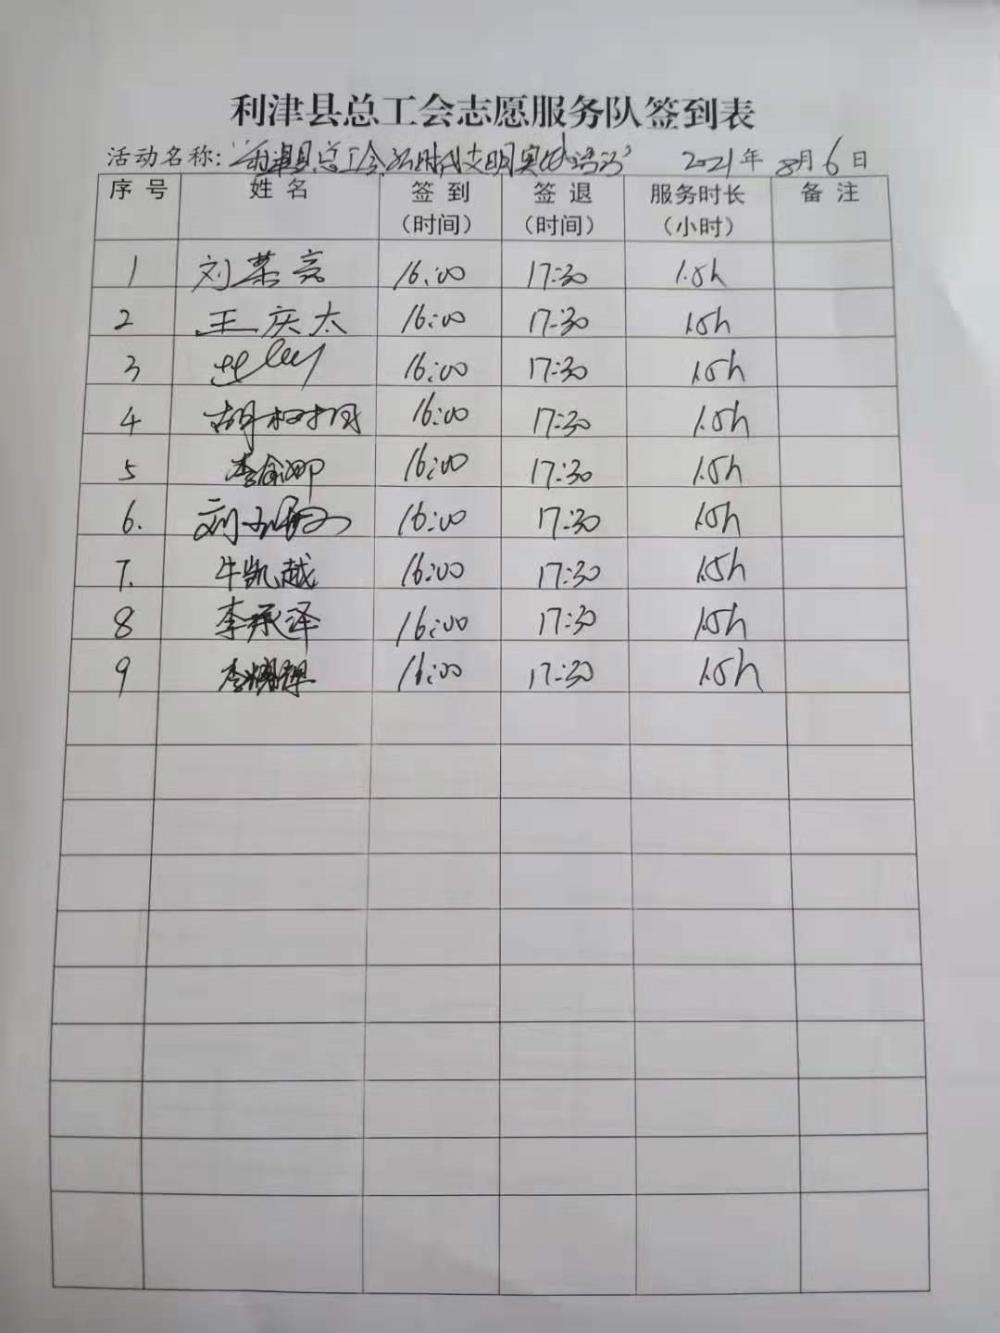 利津县总工会志愿服务队签到表
活动名称:"利津县总工会新时代文明实践活动" 2021年8月6日
序号 姓名 签到 签退 服务时长 备注
(时间) (时间) (小时)
1 刘荣亮 16:00 17:30 1.5h
2 王庆太 16:00 17:30 1.5h
3 16:00 17:30 1.5h
4 胡 16:00 17:30 1.5h
5 李 16:00 17:30 1.5h
6. 刘 16:00 17:30 1.5h
7. 牛凯越 16:00 17:30 1.5h
8 李承泽 16:00 17:30 1.5h
9 李 16:00 17:30 1.5h